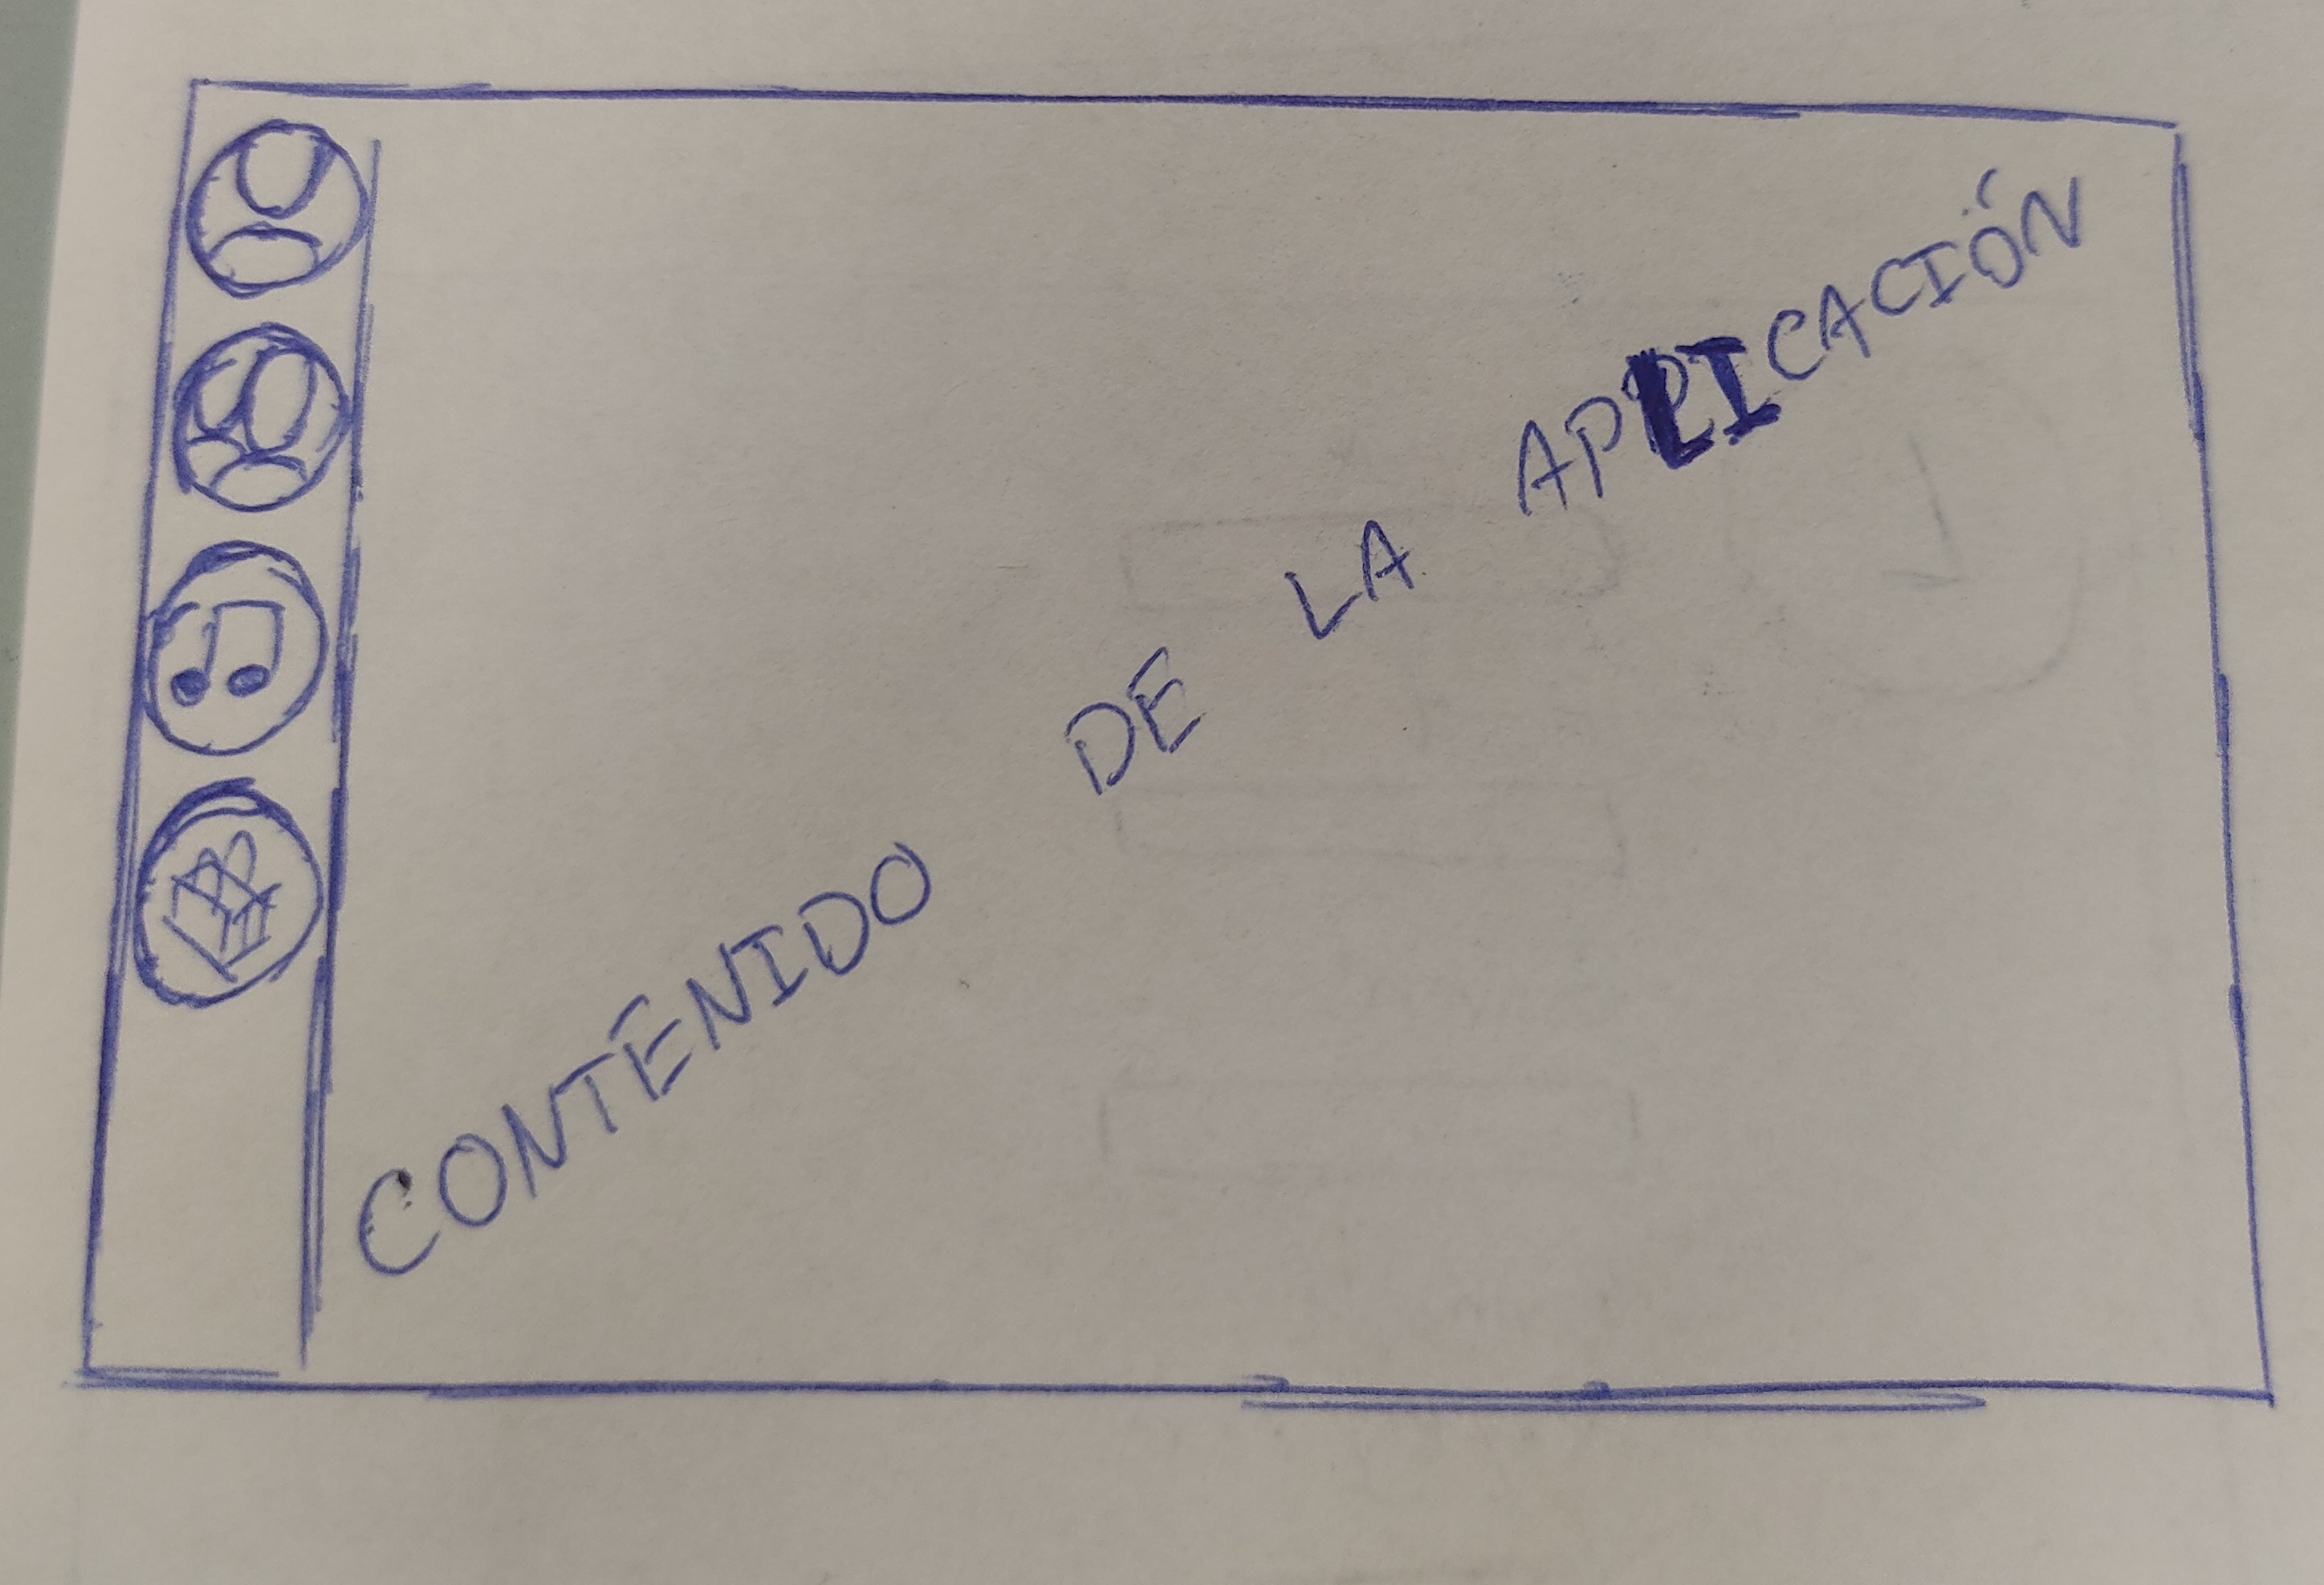 CONTENIDO DE LA APLICACIÓN